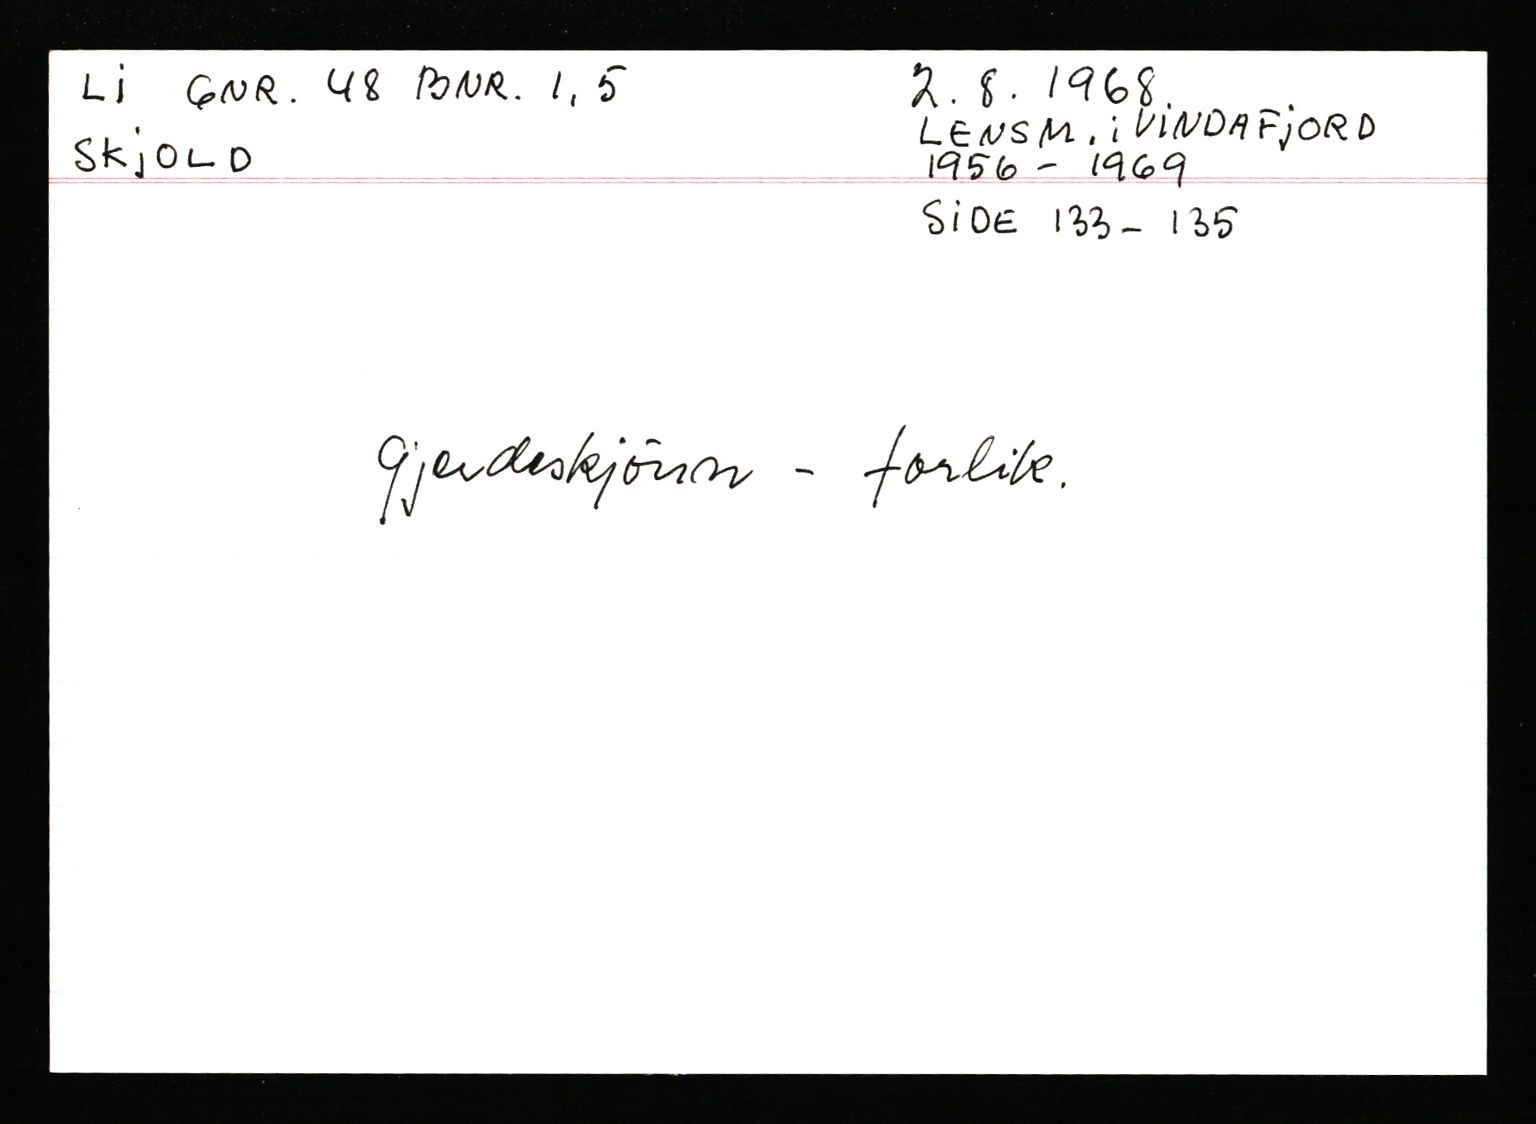 Li GNR. 48 BNR. 1, 5
SKjOLD
2. 8. 1968.
LENSM. i ViNDAFjORD
1956 - 1969
SiDE 133 - 135
Gjerdeskjönn - forlik.